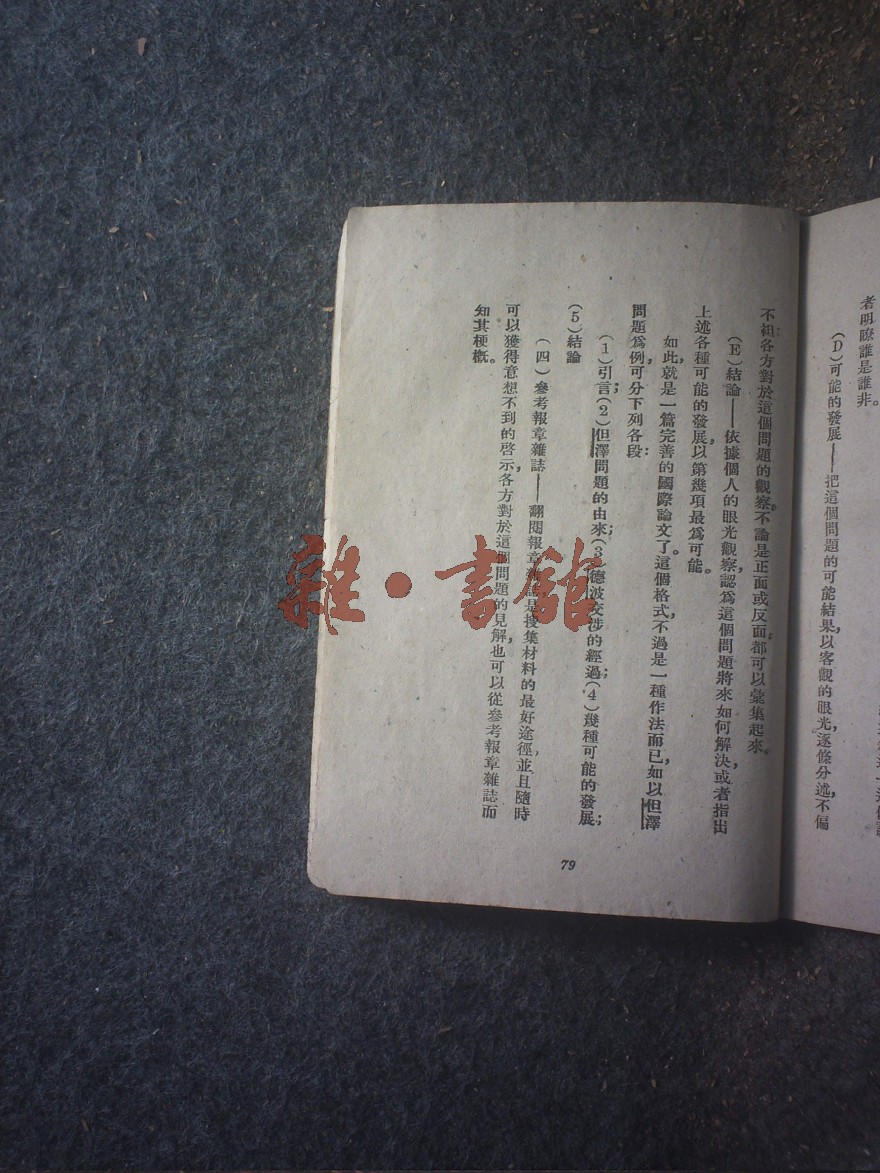 者明瞭誰是誰非。
(D)可能的發展——把這個問題的可能結果以客觀的眼光,逐條分述,不偏
不袒:各方對於這個問題的觀察。不論是正面或反面,都可以彙集起來。
(E)結論——依據個人的眼光觀察,認爲這個問題將來如何解決,或者指出
上述各種可能的發展,以第幾項最爲可能。
如此,就是一篇完善的國際論文了。這個格式不過是一種作法而已,如以但澤
問題爲例,可分下列各段:
(1)引言;(2)但澤問題的由來;(3)德波交涉的經過;(4)幾種可能的發展;
(5)結論
(四)參考報章雜誌——翻閱報章雜誌是搜集材料的最好途徑,並且隨時
可以獲得意想不到的啓示,各方對於這個問題的見解,也可以從參考報章雜誌而
知其梗概。
79
雜·書館